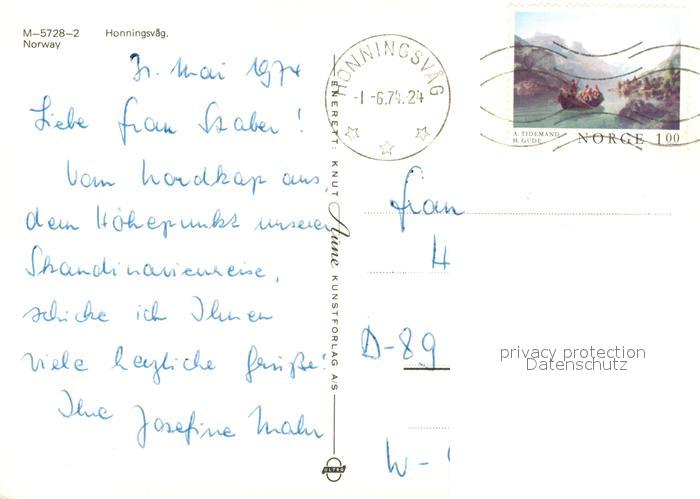 M–5728–2 Honningsvåg.
Norway
31. Mai 1974
Liebe Frau Szaber!
Vom Nordkap aus,
dem Höhepunkt unserer
Skandinavienreise,
schicke ich Ihnen
viele herzliche Grüße!
Ihre Josefine Mahr
ENERETT: KNUT Aune KUNSTFORLAG A/S
ULTRA
HONNINGSVÅG
-1-6.74.24
A. TIDEMAND
H. GUDE
NORGE 1 00
Frau
H
D-89
W-
privacy protection
Datenschutz